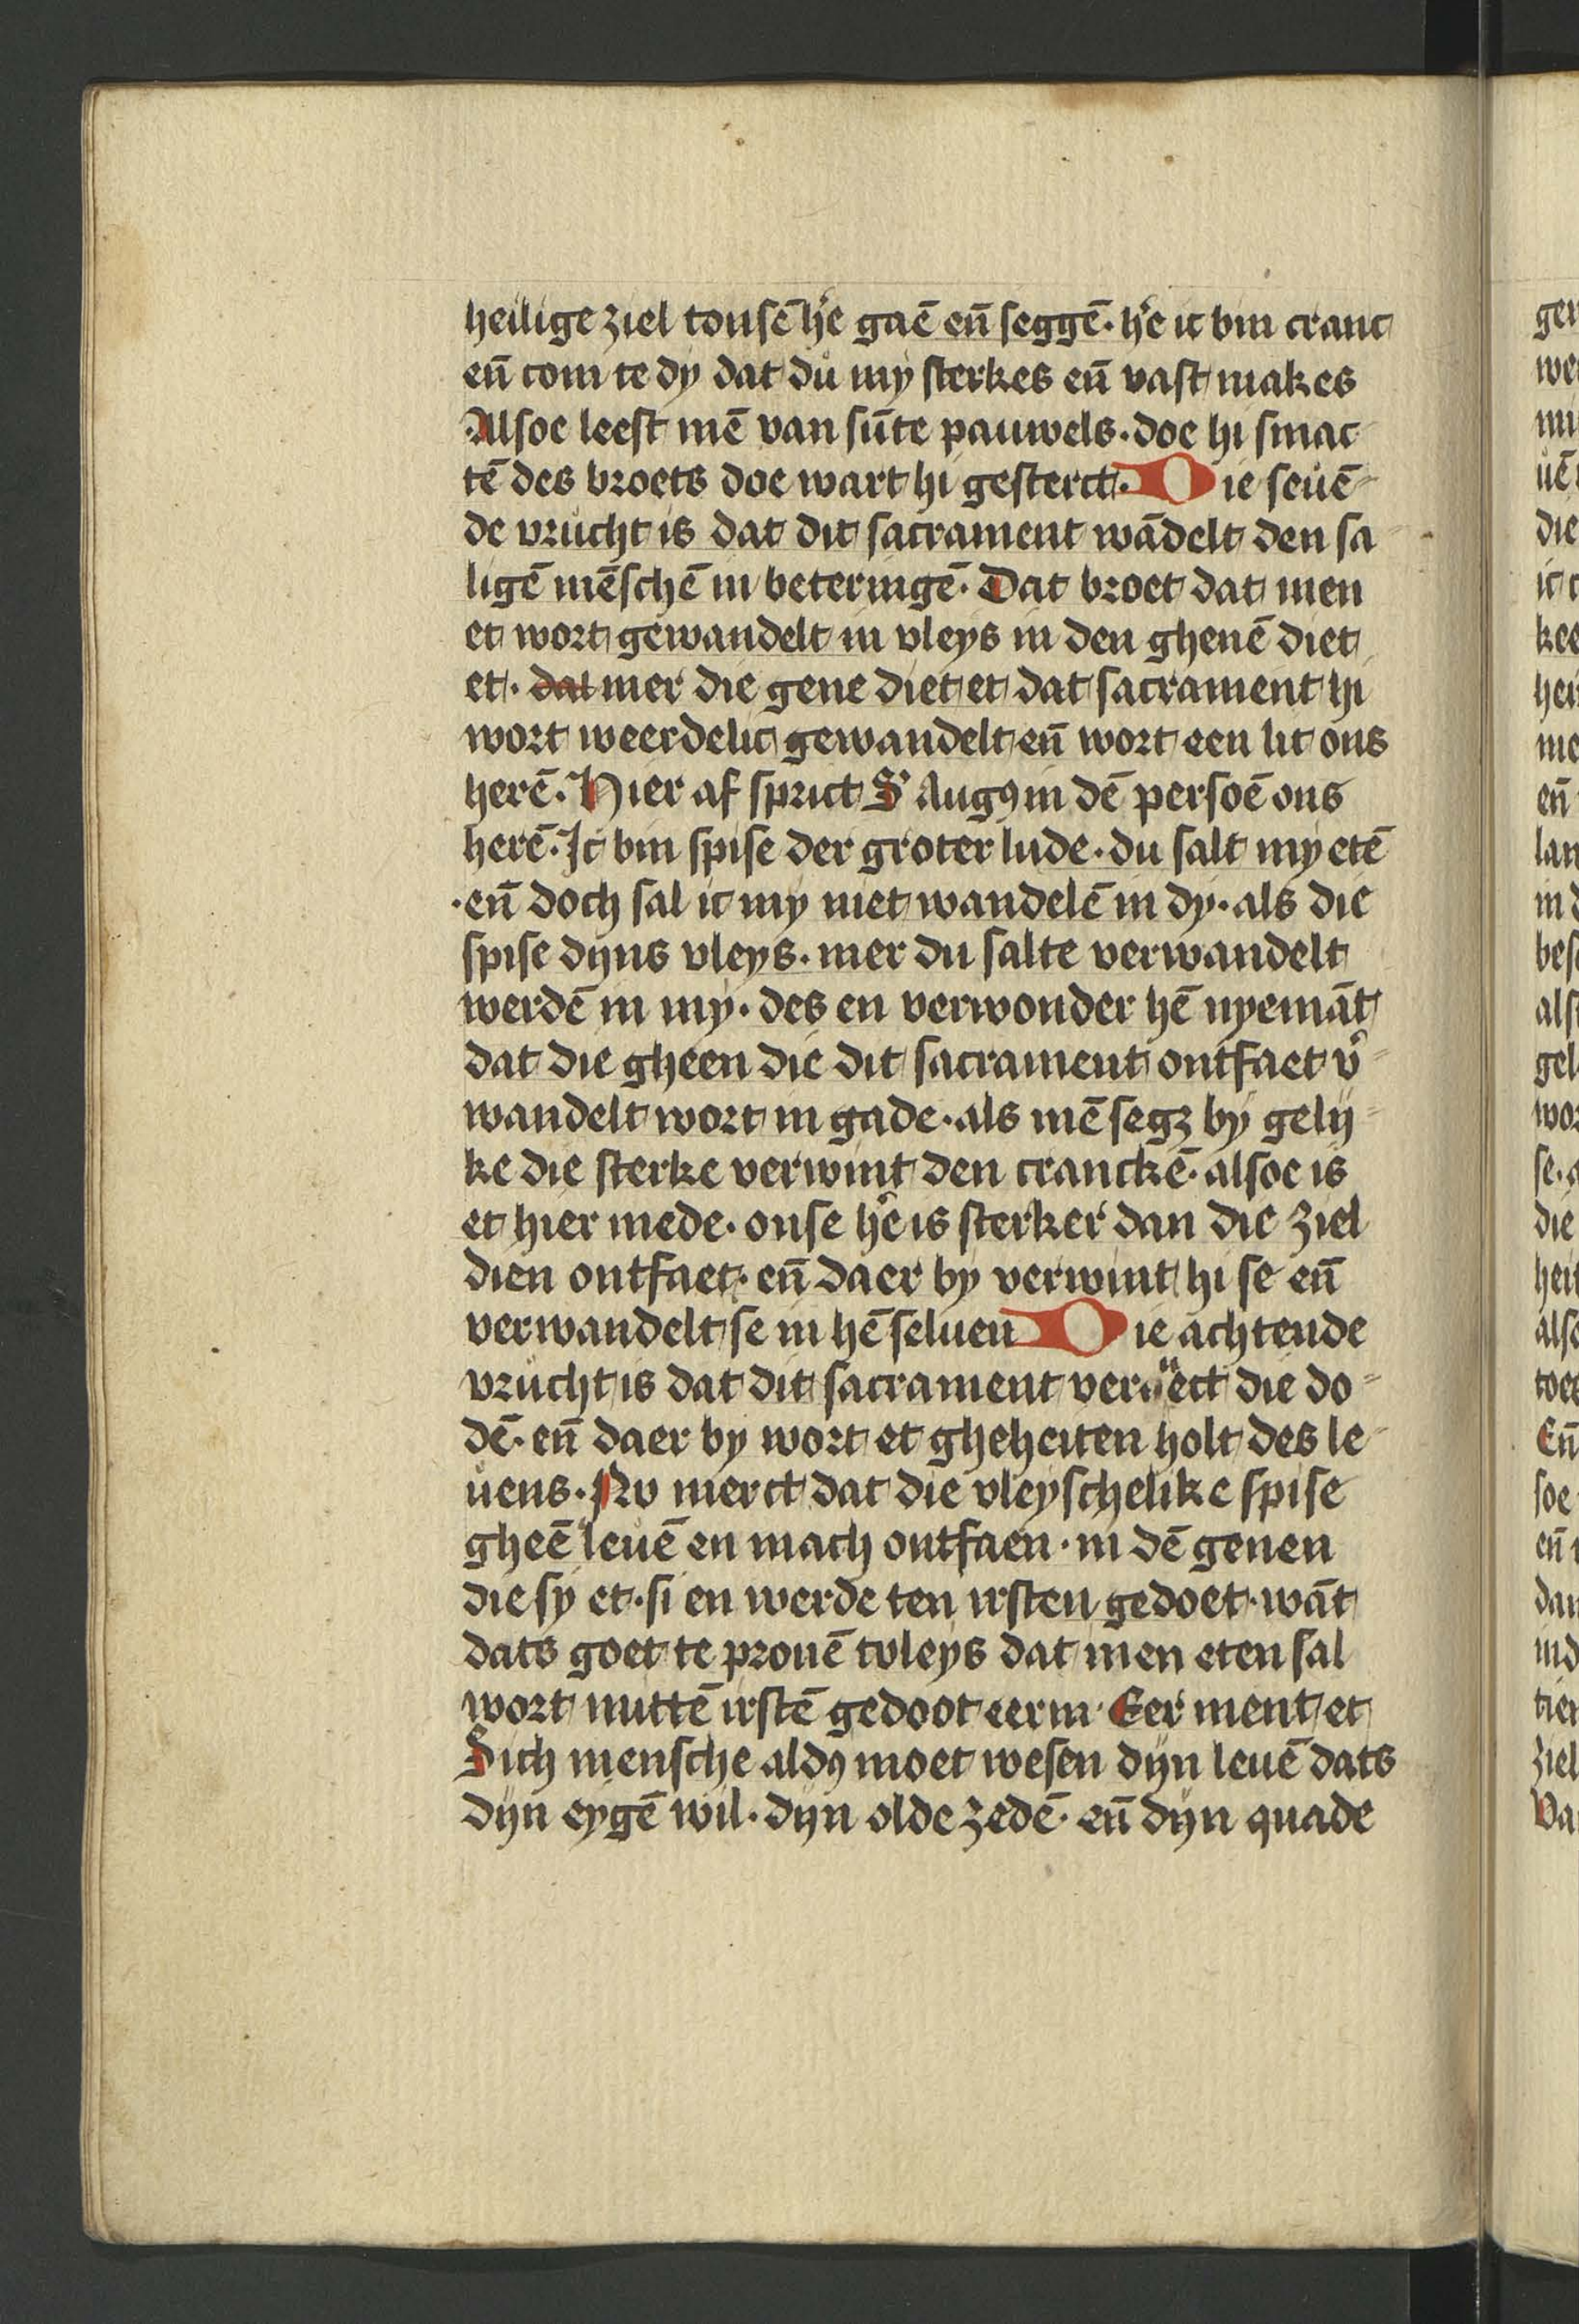 heilige ziel tonsē hr̄e gaē en̄ seggē· hr̄e ic bin cranc
en̄ com te dy dat du my sterkes en̄ vast makes
Alsoe leest mē van sūte pauwels· doe hi smac
tē des broets doe wart hi gesterct· Die seuē-
de vrucht is dat dit sacrament wādelt den sa
ligē mēschē in beteringē· Dat broet dat men
et wort gewandelt in vleys in den ghenē diet
et· dat mer die gene diet et dat sacrament hi
wort weerdelic gewandelt en̄ wort een lit ons
herē· Hier af sprict S' Augꝯ in dē persoē ons
herē· Ic bin spise der groter lude· du salt my etē
·en̄ doch sal ic my niet wandelē in dy· als die
spise dyns vleys· mer du salte verwandelt
werdē in my· des en verwonder hē nyemāt
dat die gheen die dit sacrament ontfaet v'-
wandelt wort in gade· als mē segꝫ by gely-
ke die sterke verwint den cranckē· alsoe is
et hier mede· onse hr̄e is sterker dan die ziel
dien ontfaet· en̄ daer by verwint hi se en̄
verwandelt se in hē seluen Die achtende
vrucht is dat dit sacrament verwect die do-
dē· en̄ daer by wort et gheheiten holt des le-
uens· Nv merct dat die vleyschelike spise
gheē leuē en mach ontfaen· in dē genen
die sy et· si en werde ten irsten gedoet· wāt
dats goet te prouē tvleys dat men eten sal
wort nuttē irstē gedoot eerm· Eer ment et
Sich mensche aldꝯ moet wesen dyn leuē dats
dyn eygē wil· dyn olde zedē· en̄ dyn quade